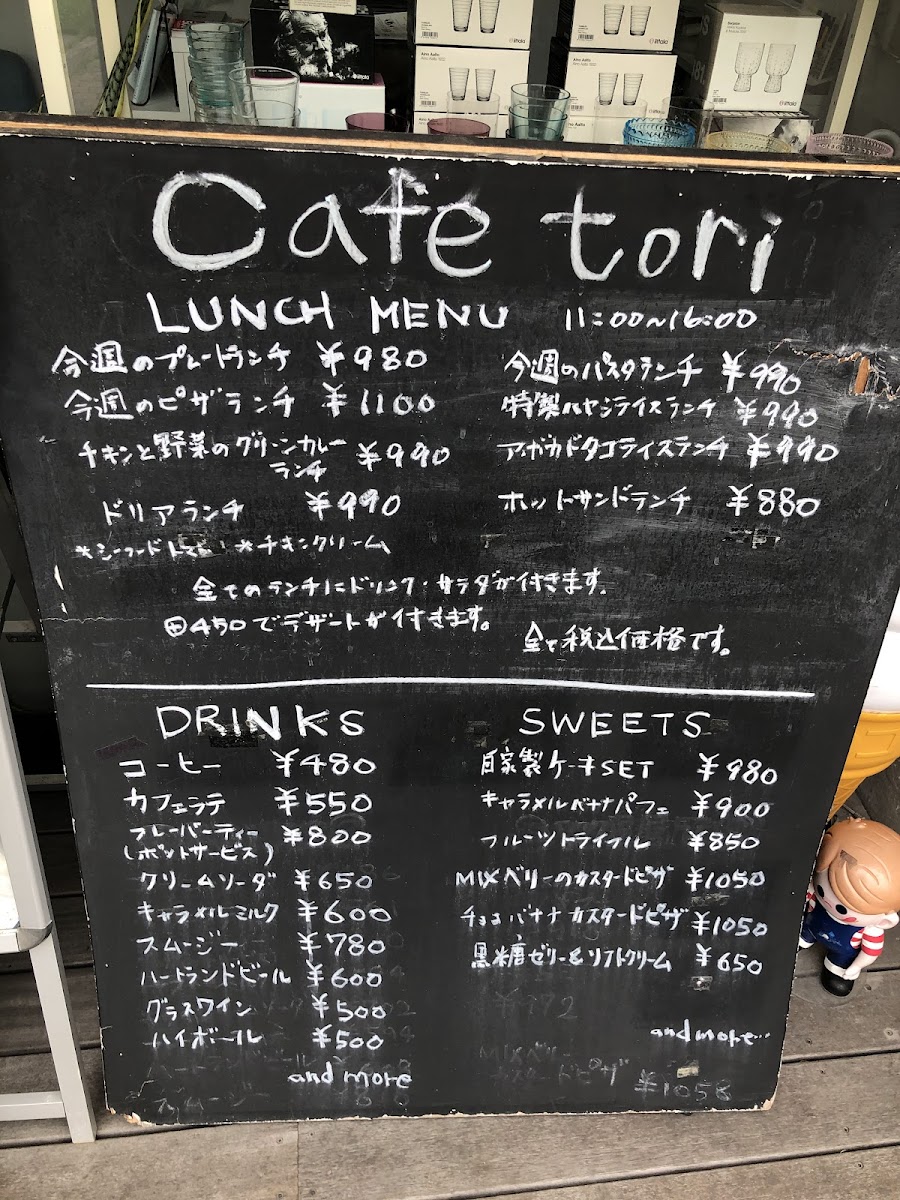 iittala
iittala
iittala
Aino Aalto
Aino Aalto
iittala
iittala
iittala
Cafe tori
LUNCH MENU 11:00~16:00
今週のプレートランチ ¥980
今週のピザランチ ¥1100
チキンと野菜のグリーンカレー
ランチ ¥990
ドリアランチ ¥990
*シーフードトマト *チキンクリーム
今週のパスタランチ ¥990
特製ハヤシライスランチ ¥990
アボカドタコライスランチ ¥990
ホットサンドランチ ¥880
全てのランチにドリンク・サラダが付きます。
⊕450でデザートが付きます。
全て税込価格です。
DRINKS
コーヒー ¥480
カフェラテ ¥550
フレーバーティー
(ポットサービス) ¥800
クリームソーダ ¥650
キャラメルミルク ¥600
スムージー ¥780
ハートランドビール ¥600
グラスワイン ¥500
ハイボール ¥500
and more
SWEETS
自家製ケーキSET ¥980
キャラメルバナナパフェ ¥900
フルーツトライフル ¥850
MIXベリーのカスタードピザ ¥1050
チョコバナナカスタードピザ ¥1050
黒糖ゼリー&ソフトクリーム ¥650
and more...
MIXベリー
カスタードピザ ¥1058